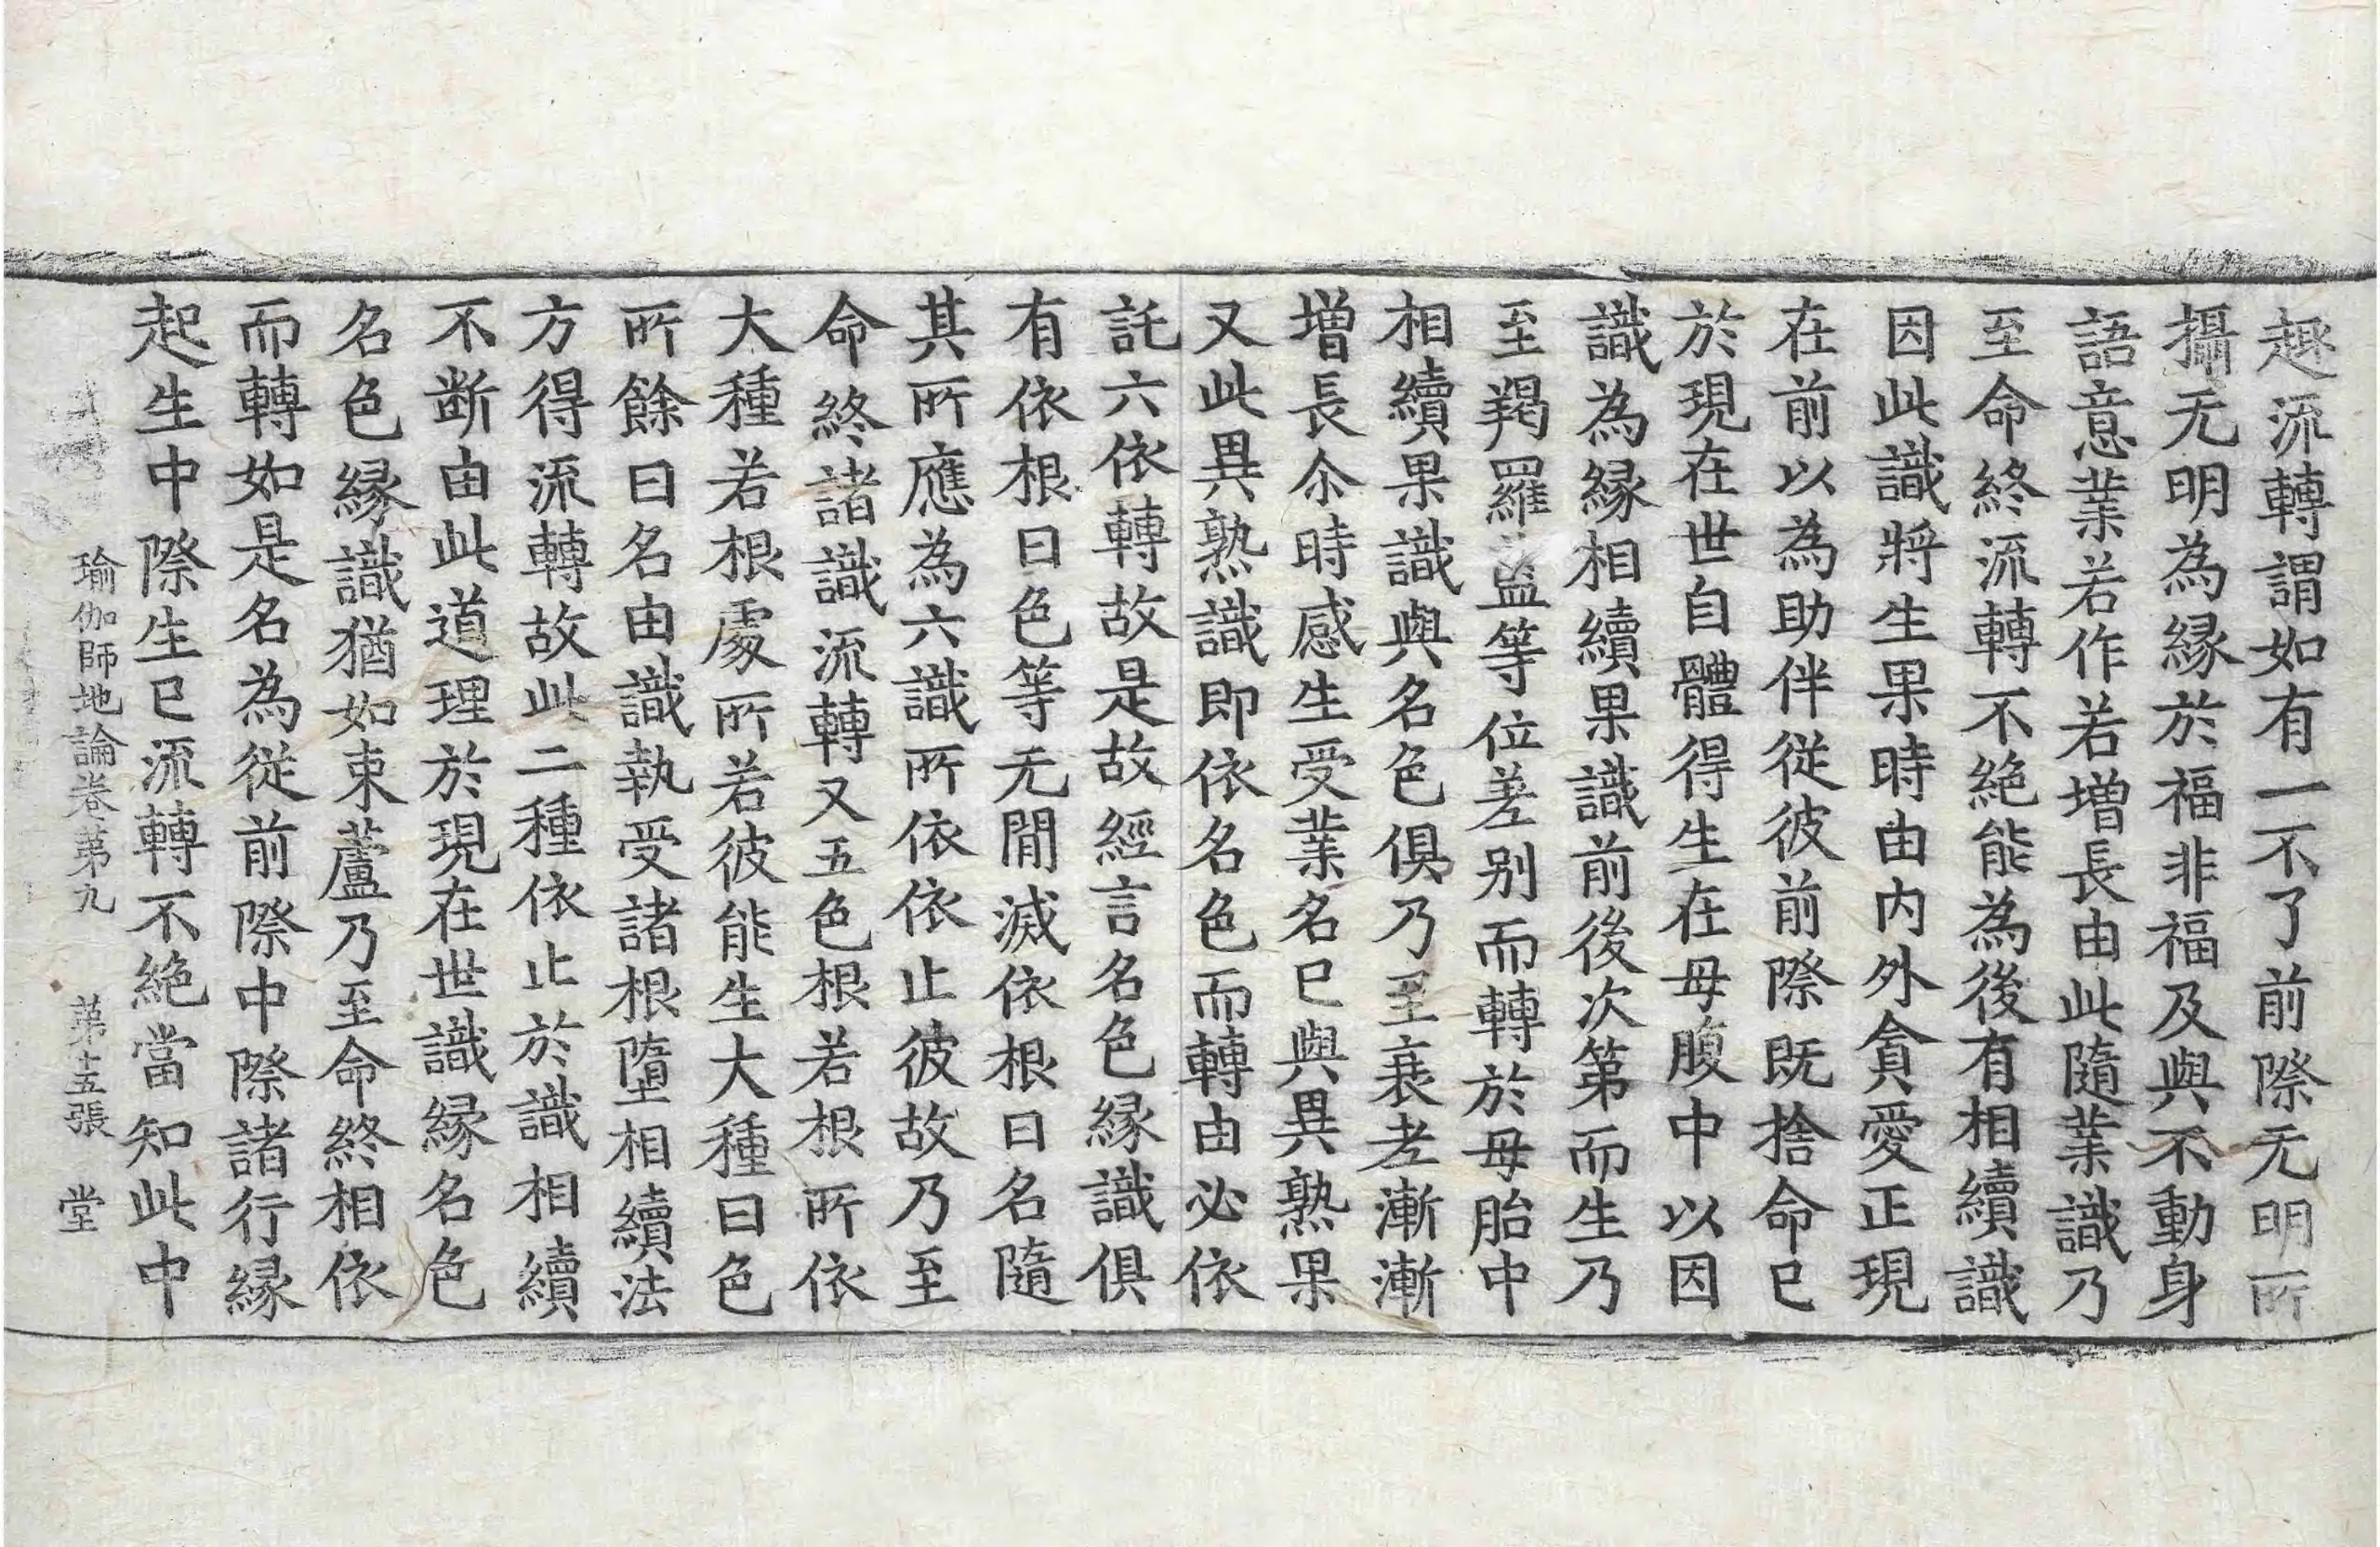 趣流轉謂如有一不了前際无明所
攝无明為緣於福非福及與不動身
語意業若作若增長由此隨業識乃
至命終流轉不絶能為後有相續識
因此識將生果時由内外貪愛正現
在前以為助伴從彼前際既捨命已
於現在世自體得生在母腹中以因
識為緣相續果識前後次第而生乃
至羯羅藍等位差别而轉於母胎中
相續果識與名色俱乃至衰老漸漸
增長尒時感生受業名已與異熟果
又此異熟識即依名色而轉由必依
託六依轉故是故經言名色緣識俱
有依根曰色等无間滅依根曰名隨
其所應為六識所依依止彼故乃至
命終諸識流轉又五色根若根所依
大種若根處所若彼能生大種曰色
所餘曰名由識執受諸根墮相續法
方得流轉故此二種依止於識相續
不断由此道理於現在世識緣名色
名色緣識猶如束蘆乃至命終相依
而轉如是名為從前際中際諸行緣
起生中際生已流轉不絶當知此中
瑜伽師地論卷第九 第十五張 堂